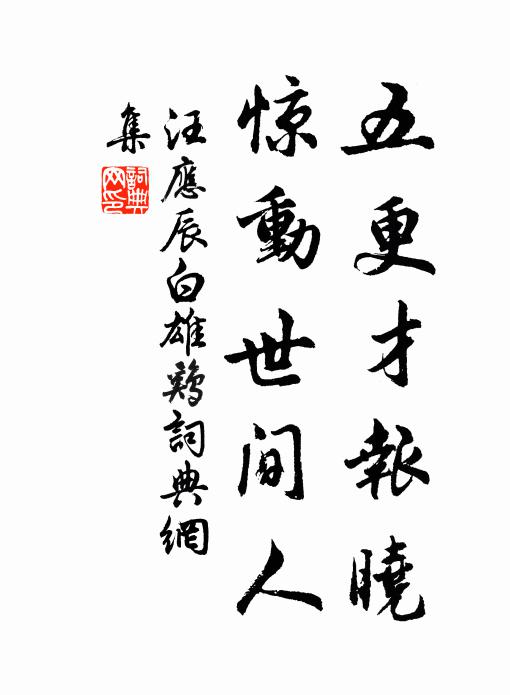 五更才報曉
惊動世间人
汪應辰白雄鷄詞典網
集
詞典
网印